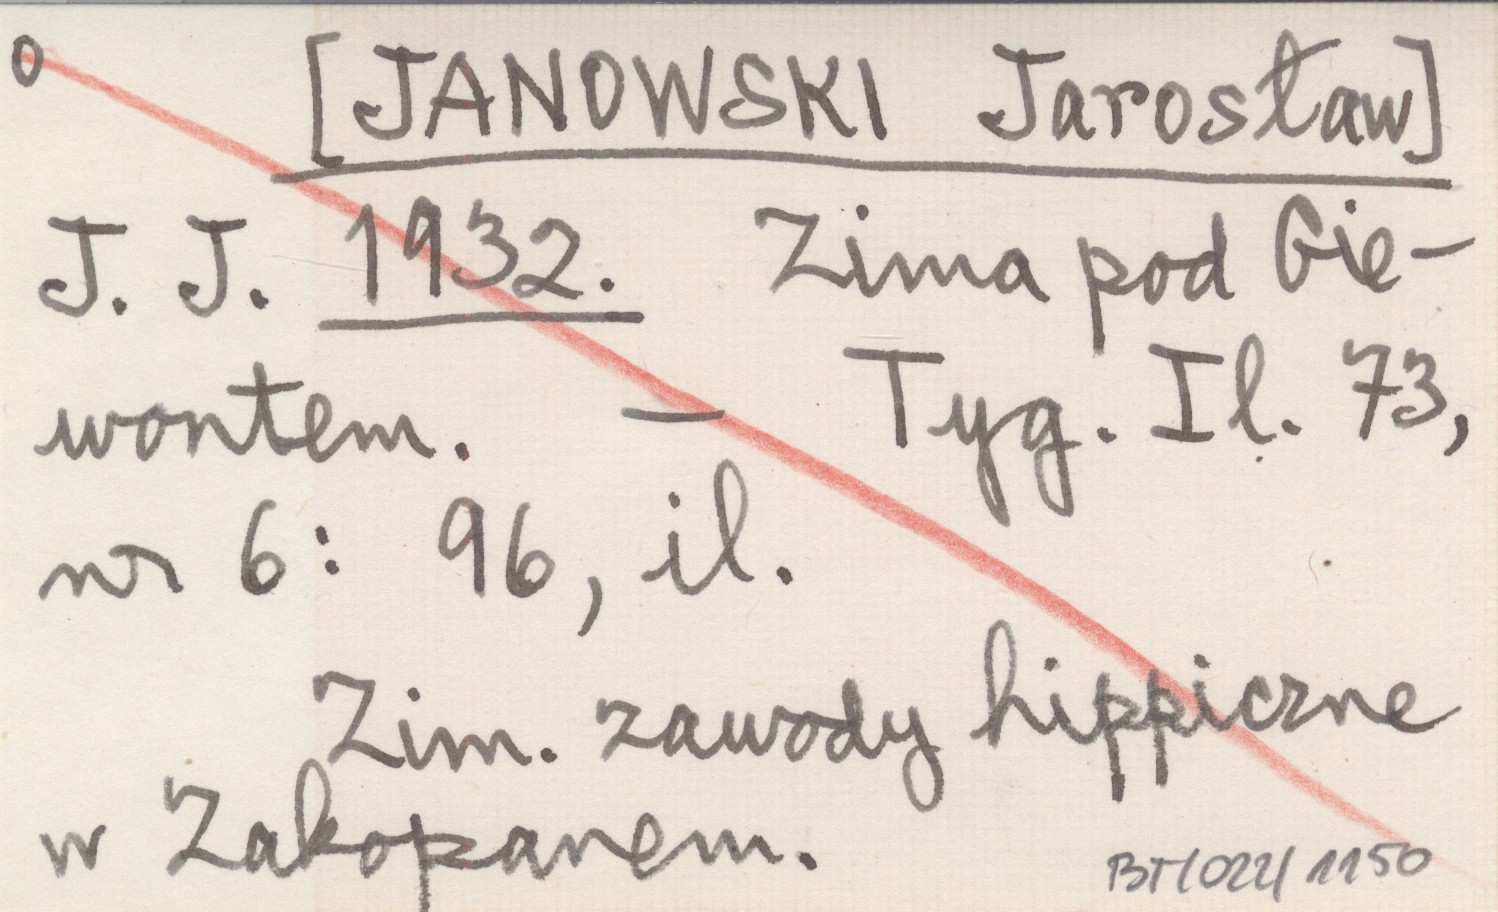 0 [JANOWSKI Jarosław]
J. J. 1932. Zima pod Gie-
wontem. — Tyg. Il. 73,
nr 6: 96, il.
Zim. zawody hippiczne
w Zakopanem.
BT/022/1150